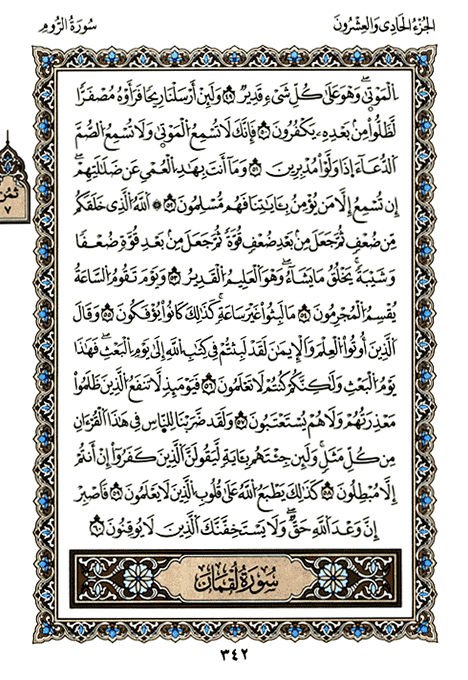 سُورَةُ الرُّومِ
الجُزْءُ الحَادِى وَالعِشْرُونَ
الْمَوْتَىٰ ۖ وَهُوَ عَلَىٰ كُلِّ شَىْءٍ قَدِيرٌ ۝٥٠ وَلَئِنْ أَرْسَلْنَا رِيحًا فَرَأَوْهُ مُصْفَرًّا
لَّظَلُّوا۟ مِنۢ بَعْدِهِۦ يَكْفُرُونَ ۝٥١ فَإِنَّكَ لَا تُسْمِعُ الْمَوْتَىٰ وَلَا تُسْمِعُ الصُّمَّ
الدُّعَآءَ إِذَا وَلَّوْا۟ مُدْبِرِينَ ۝٥٢ وَمَآ أَنتَ بِهَٰدِ الْعُمْىِ عَن ضَلَٰلَتِهِمْ ۖ
إِن تُسْمِعُ إِلَّا مَن يُؤْمِنُ بِـَٔايَٰتِنَا فَهُم مُّسْلِمُونَ ۝٥٣ ۞ اللَّهُ الَّذِى خَلَقَكُم
مِّن ضَعْفٍ ثُمَّ جَعَلَ مِنۢ بَعْدِ ضَعْفٍ قُوَّةً ثُمَّ جَعَلَ مِنۢ بَعْدِ قُوَّةٍ ضَعْفًا
وَشَيْبَةً ۚ يَخْلُقُ مَا يَشَآءُ ۖ وَهُوَ الْعَلِيمُ الْقَدِيرُ ۝٥٤ وَيَوْمَ تَقُومُ السَّاعَةُ
يُقْسِمُ الْمُجْرِمُونَ مَا لَبِثُوا۟ غَيْرَ سَاعَةٍ ۚ كَذَٰلِكَ كَانُوا۟ يُؤْفَكُونَ ۝٥٥ وَقَالَ
الَّذِينَ أُوتُوا۟ الْعِلْمَ وَالْإِيمَٰنَ لَقَدْ لَبِثْتُمْ فِى كِتَٰبِ اللَّهِ إِلَىٰ يَوْمِ الْبَعْثِ ۖ فَهَٰذَا
يَوْمُ الْبَعْثِ وَلَٰكِنَّكُمْ كُنتُمْ لَا تَعْلَمُونَ ۝٥٦ فَيَوْمَئِذٍ لَّا تَنفَعُ الَّذِينَ ظَلَمُوا۟
مَعْذِرَتُهُمْ وَلَا هُمْ يُسْتَعْتَبُونَ ۝٥٧ وَلَقَدْ ضَرَبْنَا لِلنَّاسِ فِى هَٰذَا الْقُرْءَانِ
مِن كُلِّ مَثَلٍ ۚ وَلَئِن جِئْتَهُم بِـَٔايَةٍ لَّيَقُولَنَّ الَّذِينَ كَفَرُوٓا۟ إِنْ أَنتُمْ
إِلَّا مُبْطِلُونَ ۝٥٨ كَذَٰلِكَ يَطْبَعُ اللَّهُ عَلَىٰ قُلُوبِ الَّذِينَ لَا يَعْلَمُونَ ۝٥٩ فَاصْبِرْ
إِنَّ وَعْدَ اللَّهِ حَقٌّ ۖ وَلَا يَسْتَخِفَّنَّكَ الَّذِينَ لَا يُوقِنُونَ ۝٦٠
سُورَةُ لُقْمَانَ
ثُمُن
٧
٣٤٢